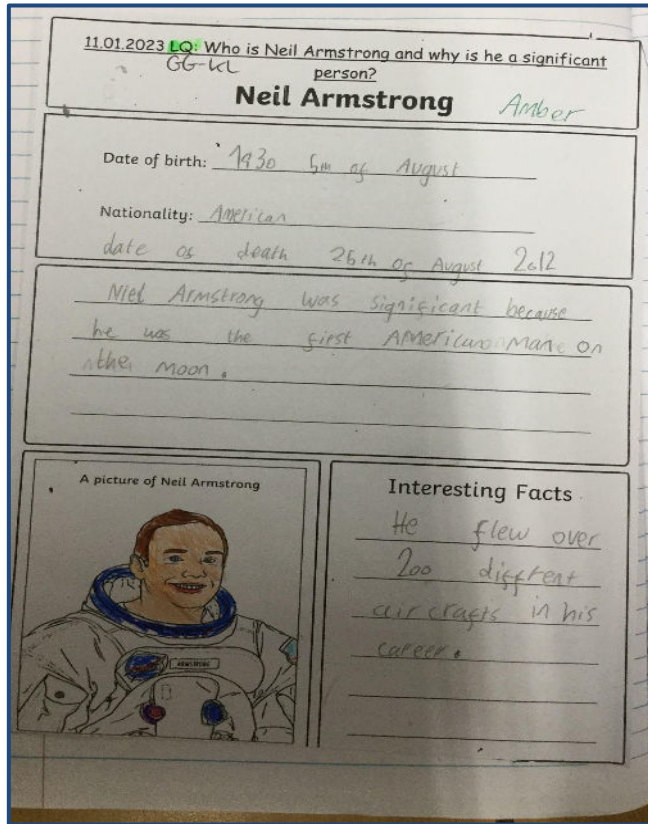 11.01.2023 LQ: Who is Neil Armstrong and why is he a significant
GG-WL
person?
Neil Armstrong Amber
Date of birth: 1930 5th of August
Nationality: American
date of death 25th of August 2012
Niel Armstrong was significant because
he was the first American man on
the moon.
A picture of Neil Armstrong
ARMSTRONG
Interesting Facts
He flew over
200 diffrent
air crafts in his
career.